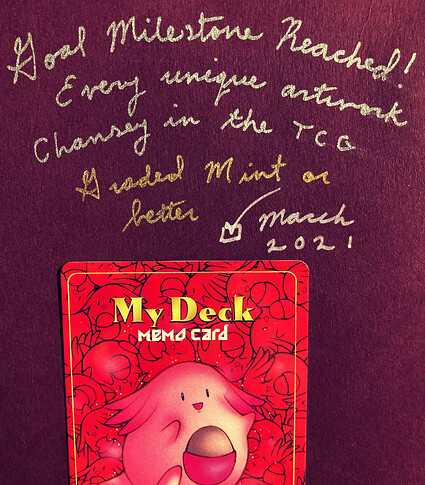 Goal Milestone Reached!
Every unique artwork
Chansey in the TCG
Graded Mint or
better ☑ March
2021
My Deck
MEMO CARD